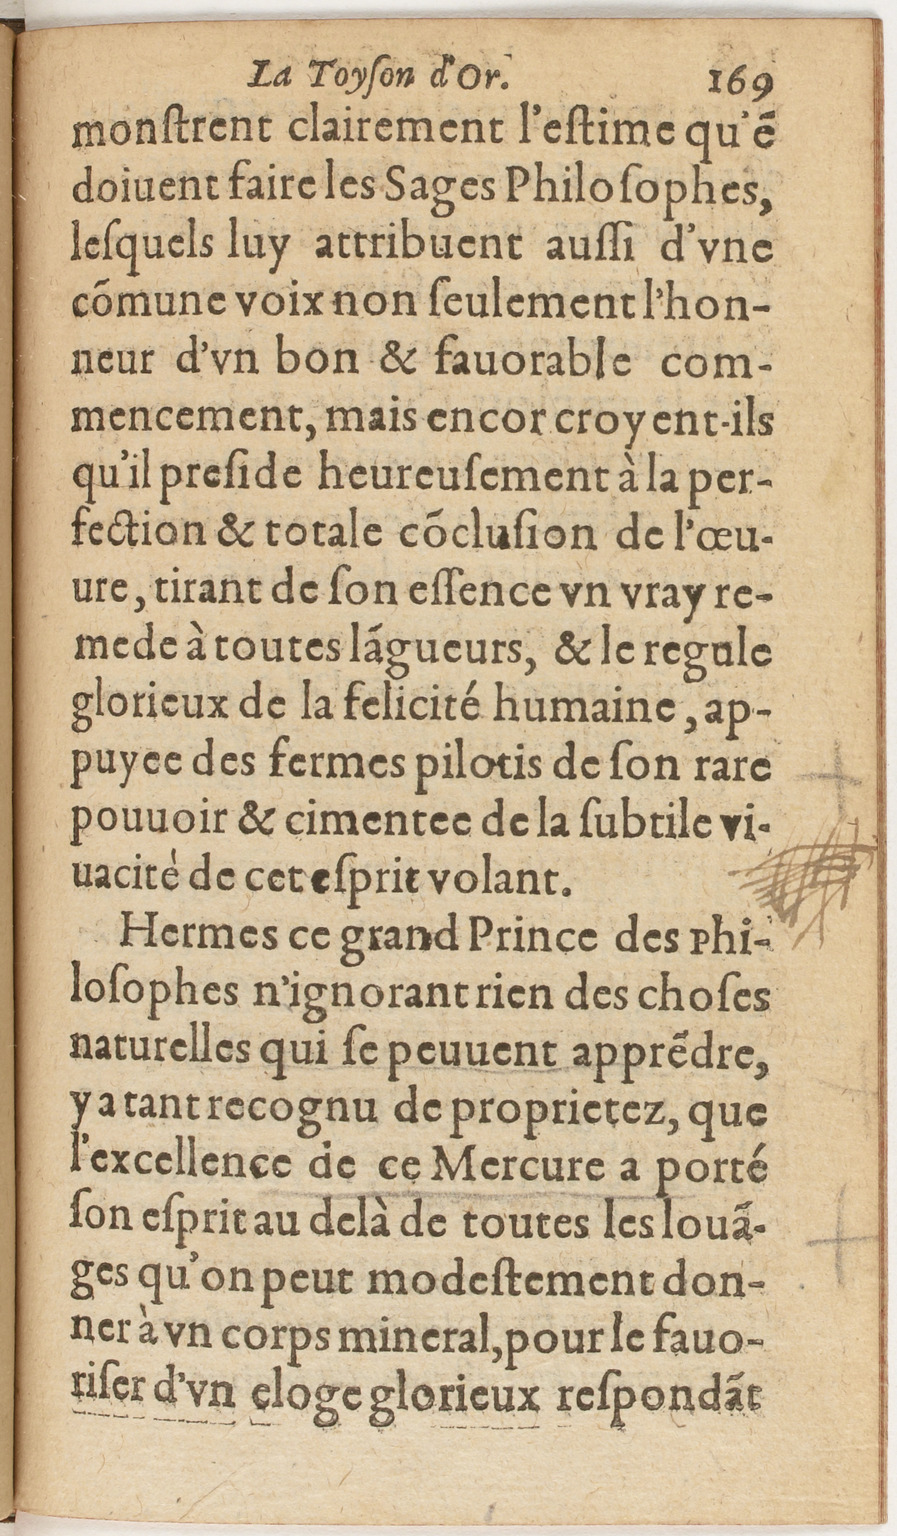 La Toyſon d'Or. 169
monſtrent clairement l'eſtime qu'ẽ
doiuent faire les Sages Philoſophes,
leſquels luy attribuent auſſi d'vne
cõmune voix non ſeulement l'hon-
neur d'vn bon & fauorable com-
mencement, mais encor croyent-ils
qu'il preſide heureuſement à la per-
fection & totale cõcluſion de l'œu-
ure, tirant de ſon eſſence vn vray re-
mede à toutes lãgueurs, & le regule
glorieux de la felicité humaine, ap-
puyee des fermes pilotis de ſon rare
pouuoir & cimentee de la ſubtile vi-
uacité de cet eſprit volant.
Hermes ce grand Prince des Phi-
loſophes n'ignorant rien des choſes
naturelles qui ſe peuuent apprẽdre,
y a tant recognu de proprietez, que
l'excellence de ce Mercure a porté
ſon eſprit au delà de toutes les louã-
ges qu'on peut modeſtement don-
ner à vn corps mineral, pour le fauo-
riſer d'vn eloge glorieux reſpondãt